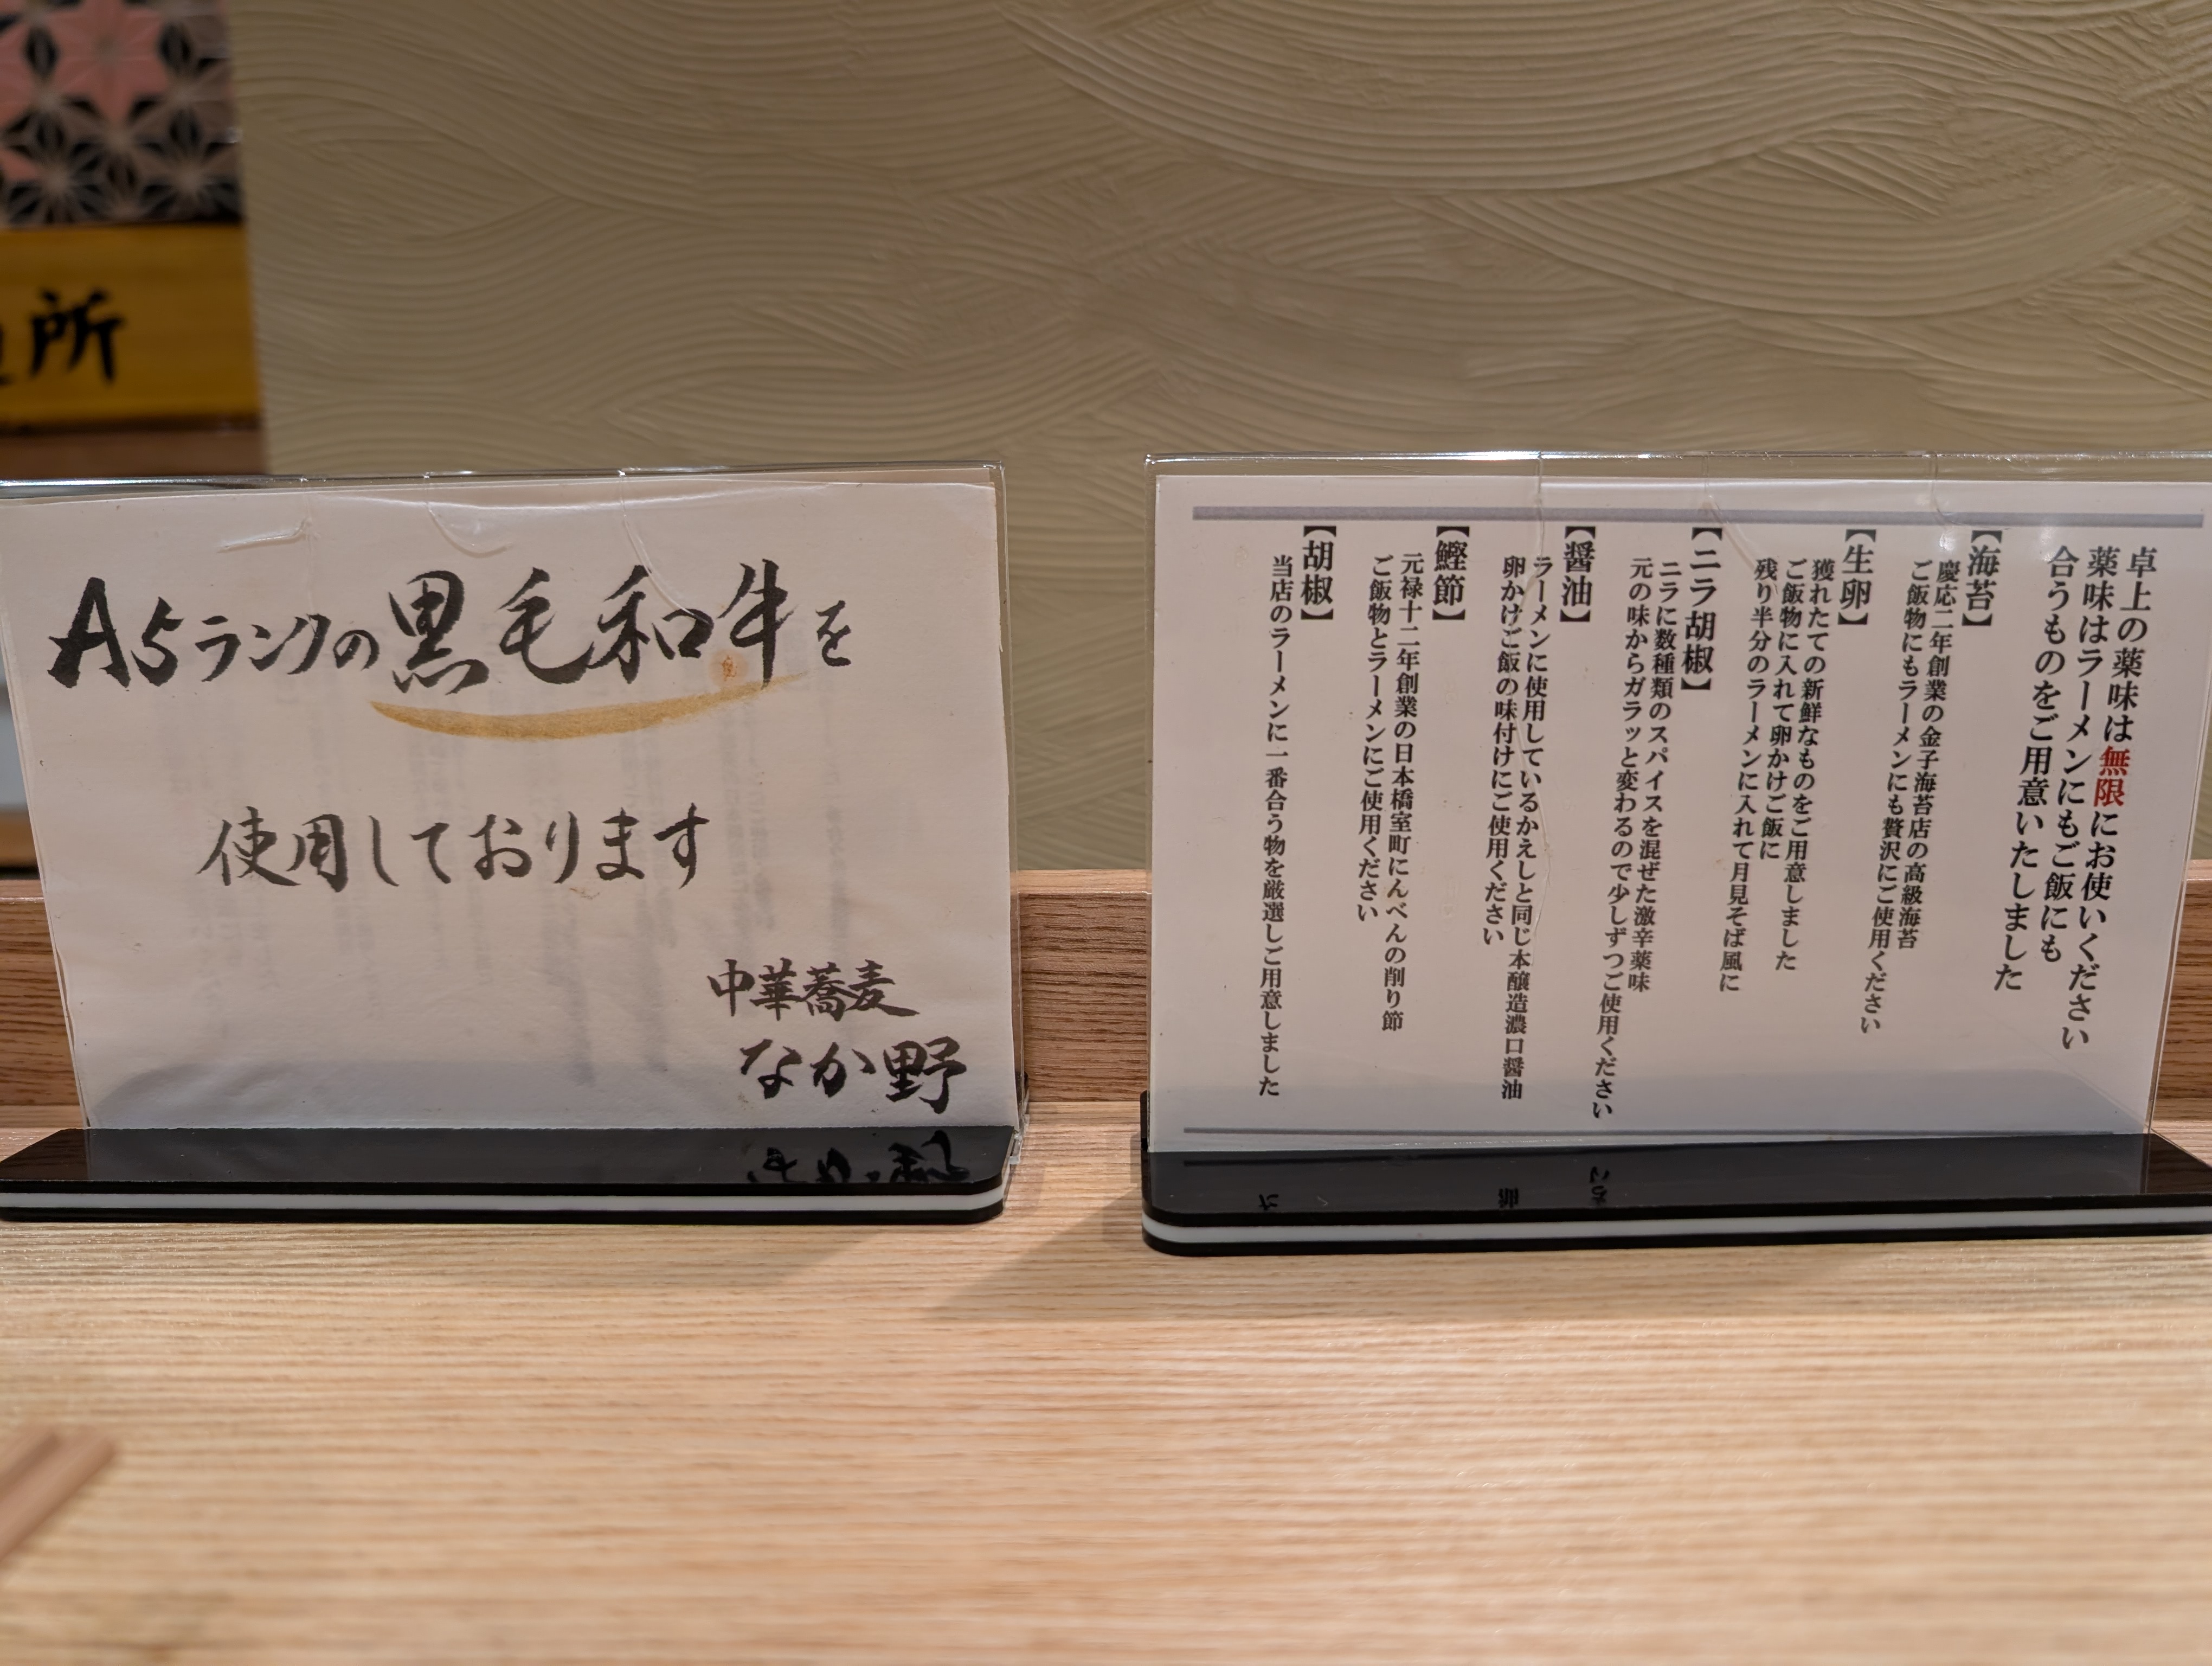 所
A5ランクの黒毛和牛を
使用しております
中華蕎麦
なか野
卓上の薬味は無限にお使いください
薬味はラーメンにもご飯にも
合うものをご用意いたしました
【海苔】
慶応二年創業の金子海苔店の高級海苔
ご飯物にもラーメンにも贅沢にご使用ください
【生卵】
獲れたての新鮮なものをご用意しました
ご飯物に入れて卵かけご飯に
残り半分のラーメンに入れて月見そば風に
【ニラ胡椒】
ニラに数種類のスパイスを混ぜた激辛薬味
元の味からガラッと変わるので少しずつご使用ください
【醤油】
ラーメンに使用しているかえしと同じ本醸造濃口醤油
卵かけご飯の味付けにご使用ください
【鰹節】
元禄十二年創業の日本橋室町にんべんの削り節
ご飯物とラーメンにご使用ください
【胡椒】
当店のラーメンに一番合う物を厳選しご用意しました